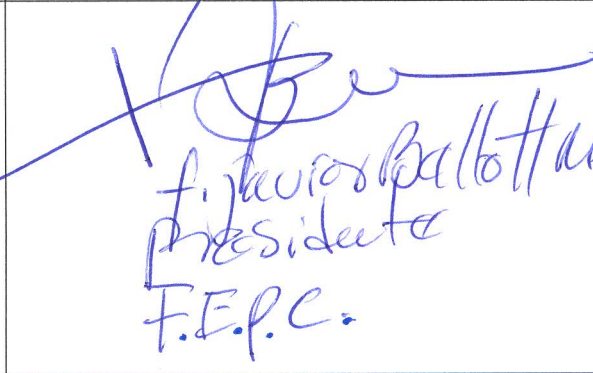 f. Javier Ballotta
Presidente
F.E.P.C.